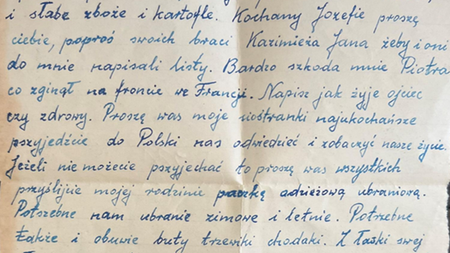 i słabe zboże i kartofle. Kochany Józefie proszę
ciebie, poproś swoich braci Kazimieża Jana żeby i oni
do mnie napisali listy. Bardzo szkoda mnie Piotra
co zginął na froncie we Francji. Napisz jak żyje ojciec
czy zdrowy. Proszę was moje siostranki najukochańsze
pszyjedźcie do Polski nas odwiedzieć i zobaczyć nasze życie.
Jeżeli nie możecie pszyjechać to proszę was wszystkich
pszyślijcie mojéj rodzinie paczkę odzieżową ubraniową.
Potszebne nam ubranie zimowe i letnie. Potszebne
także i obuwie buty trzewiki chodaki. Z łaski swej